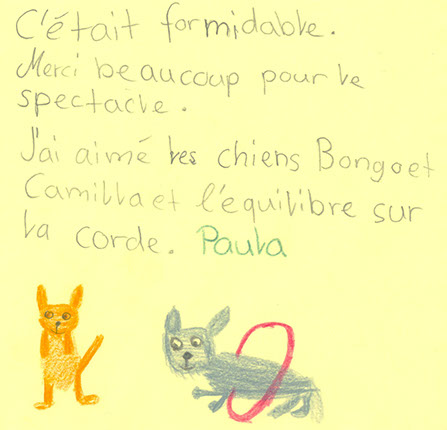 C'était formidable.
Merci beaucoup pour le
spectacle.
J'ai aimé les chiens Bongo et
Camilla et l'équilibre sur
la corde. Paula